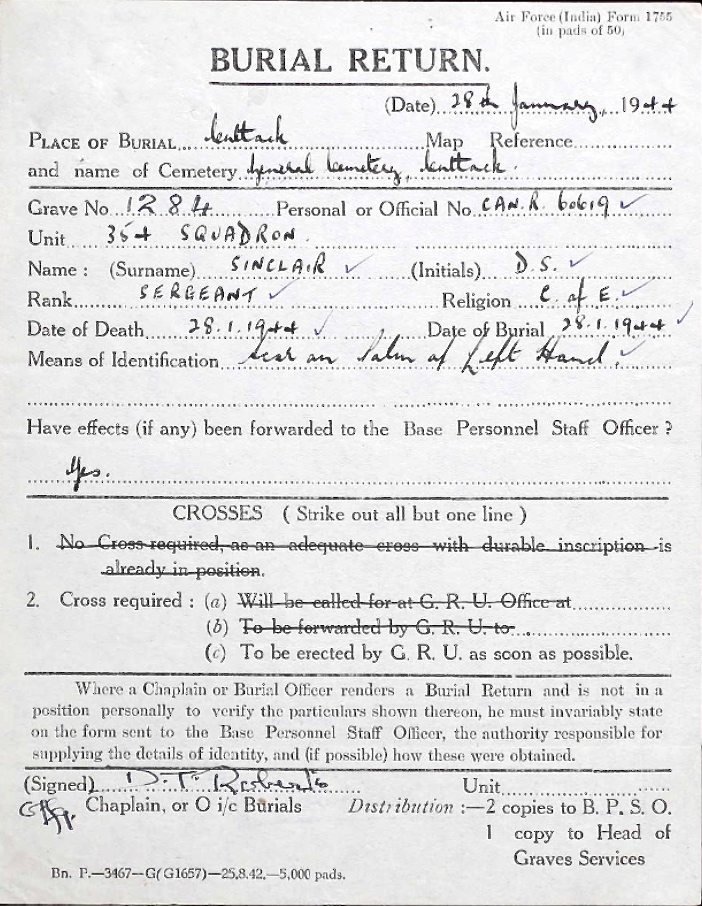 Air Force (India) Form 1755
(in pads of 50)
BURIAL RETURN.
(Date) 28th January, 1944
PLACE OF BURIAL Cuttack Map Reference
and name of Cemetery General Cemetery, Cuttack.
Grave No. 1284 Personal or Official No. CAN.R. 60619
Unit 354 SQUADRON
Name : (Surname) SINCLAIR (Initials) D.S.
Rank SERGEANT Religion C. of E.
Date of Death 28.1.1944 Date of Burial 28.1.1944
Means of Identification Scar on Palm of Left Hand.
Have effects (if any) been forwarded to the Base Personnel Staff Officer ?
Yes.
CROSSES ( Strike out all but one line )
1. No Cross required, as an adequate cross with durable inscription is
already in position.
2. Cross required : (a) Will be called for at G. R. U. Office at
(b) To be forwarded by G. R. U. to
(c) To be erected by G. R. U. as soon as possible.
Where a Chaplain or Burial Officer renders a Burial Return and is not in a
position personally to verify the particulars shown thereon, he must invariably state
on the form sent to the Base Personnel Staff Officer, the authority responsible for
supplying the details of identity, and (if possible) how these were obtained.
(Signed) D. T. Roberts Unit
Chaplain, or O i/c Burials Distribution :—2 copies to B. P. S. O.
1 copy to Head of
Graves Services
Bn. P.—3467—G(G1657)—25.8.42.—5,000 pads.